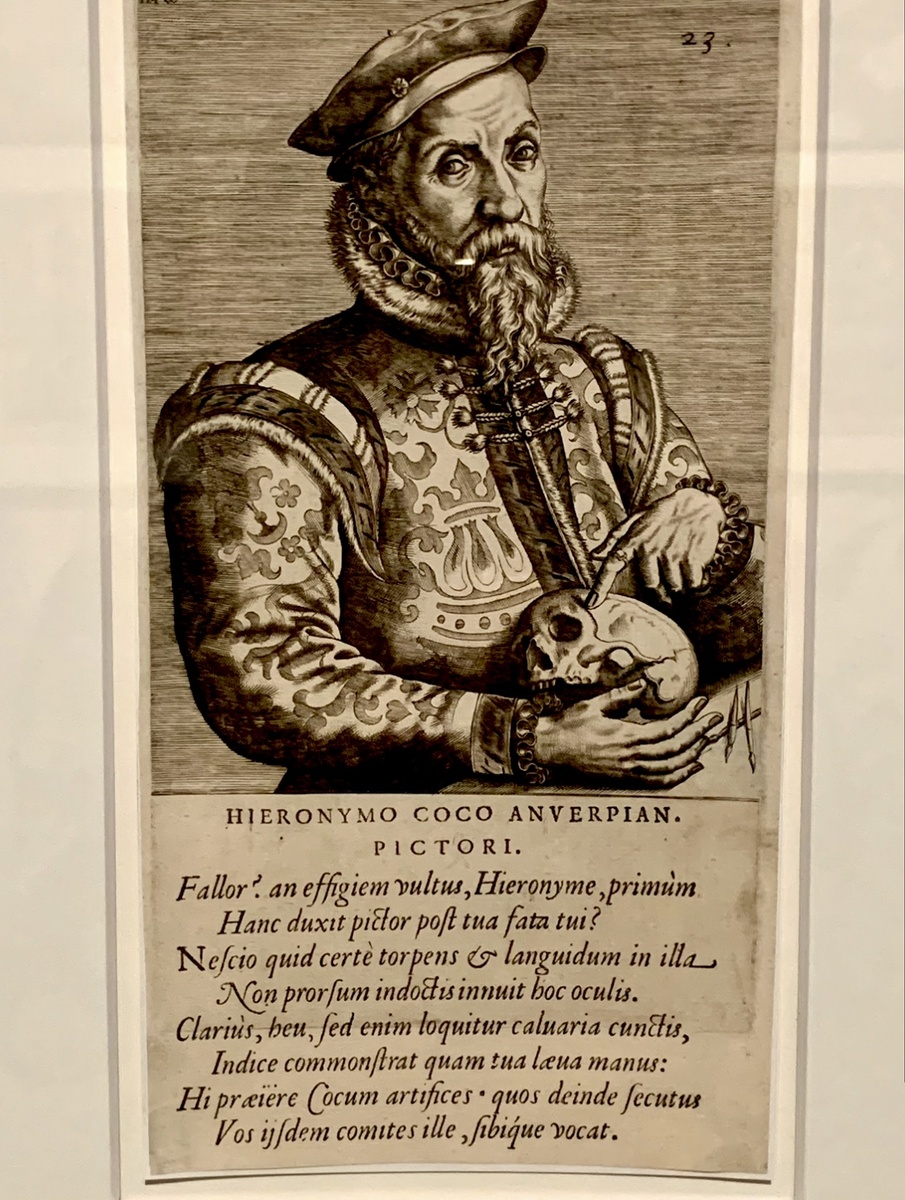 23.
HIERONYMO COCO ANVERPIAN.
PICTORI.
Fallor? an effigiem vultus, Hieronyme, primùm
Hanc duxit pictor poſt tua fata tui?
Neſcio quid certè torpens & languidum in illa
Non prorſum indoctis innuit hoc oculis.
Clariùs, heu, ſed enim loquitur caluaria cunctis,
Indice commonſtrat quam tua læua manus:
Hi præïere Cocum artifices · quos deinde ſecutus
Vos ijſdem comites ille, ſibíque vocat.